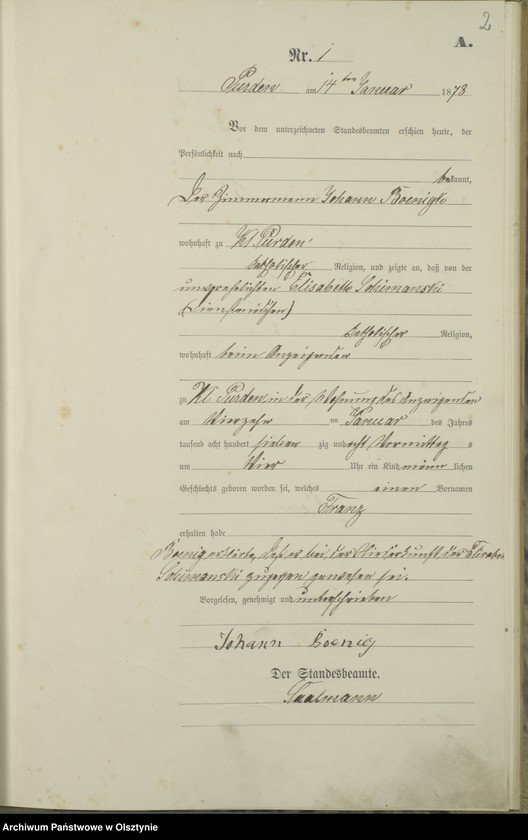 2
A.
Nr. 1
Purden am 14ten Januar 1878
Vor dem unterzeichneten Standesbeamten erschien heute, der
Persönlichkeit nach
bekannt,
Der Zimmermann Johann Boenigk
wohnhaft zu Kl Purden
katholischer Religion, und zeigte an, daß von der
unverehelichten Elisabeth Schimanski
(Dienstmädchen)
katholischer Religion,
wohnhaft beim Anzeigenden
zu Kl Purden in der Wohnung des Anzeigenden
am Vierzehn ten Januar des Jahres
tausend acht hundert sieben zig und acht Vormittag s
um Vier Uhr ein Kind männ lichen
Geschlechts geboren worden sei, welches einen Vornamen
Franz
erhalten habe
Boenig erklärte, daß er bei der Niederkunft der
Schimanski zugegen gewesen sei.
Vorgelesen, genehmigt und unterschrieben
Johann Boenig
Der Standesbeamte.
Archiwum Państwowe w Olsztynie